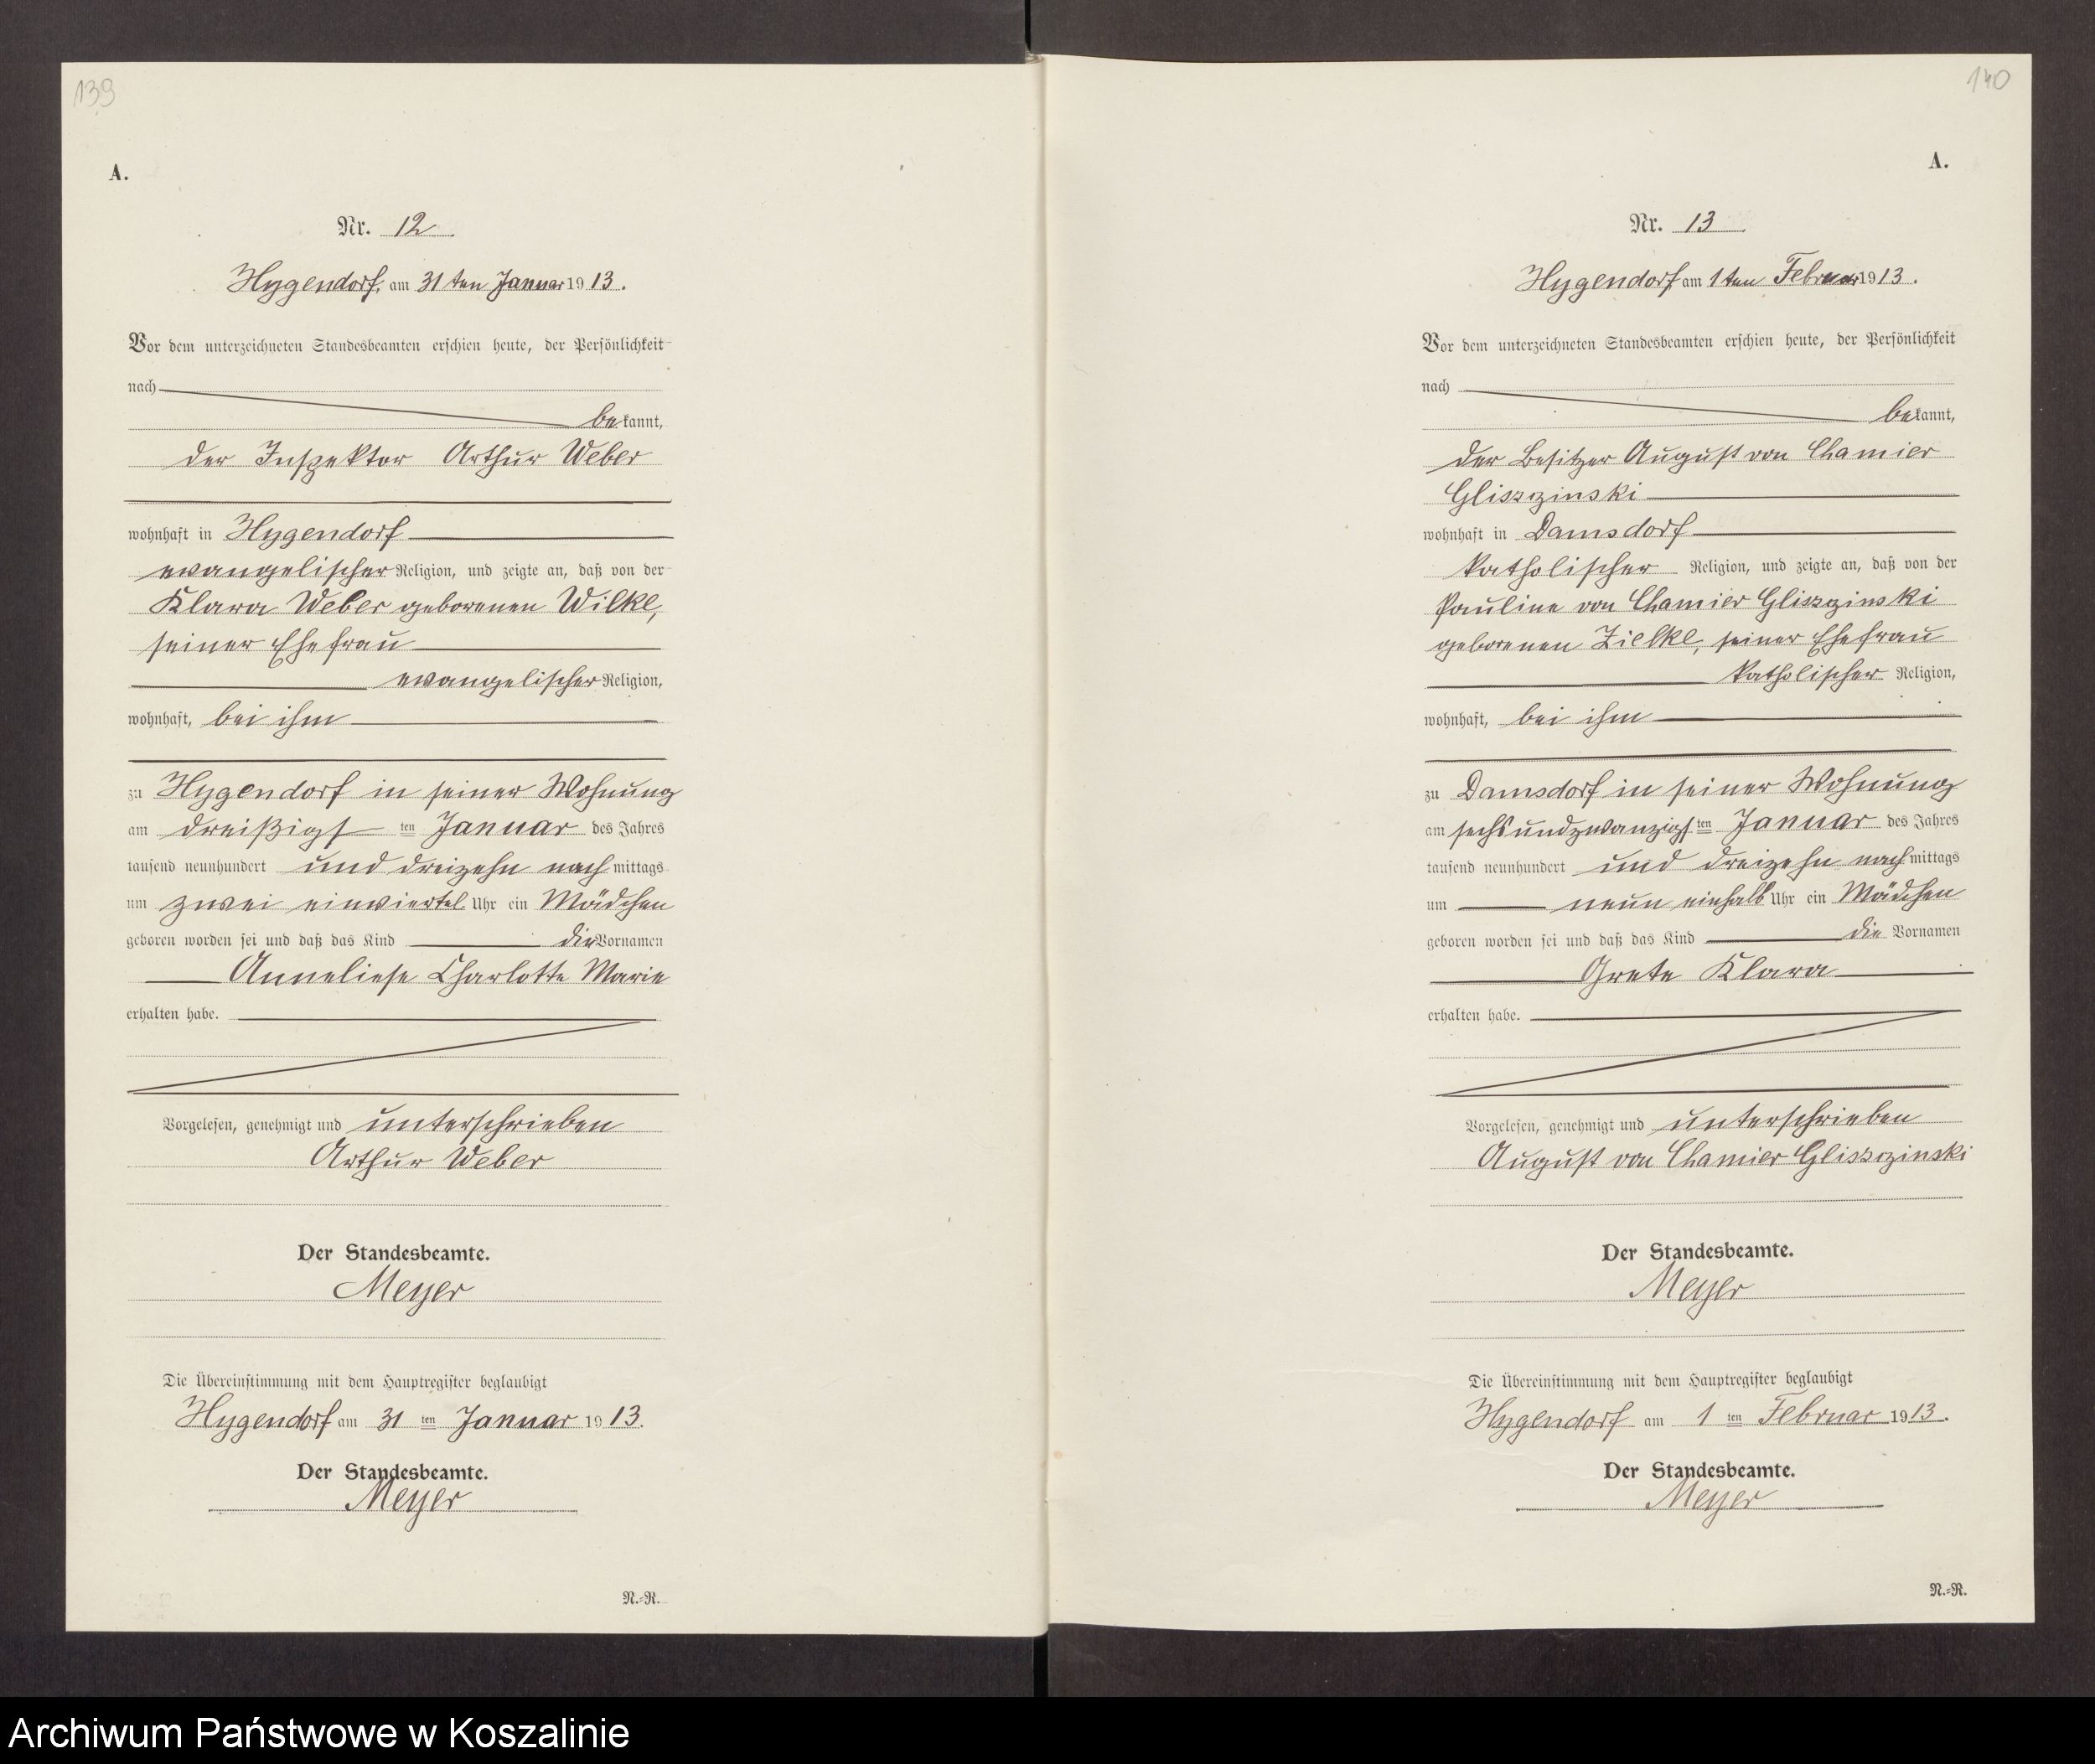 139
A.
Nr. 12
Hygendorf, am 31ten Januar 1913.
Vor dem unterzeichneten Standesbeamten erschien heute, der Persönlichkeit
nach
bekannt,
der Inspektor Arthur Weber
wohnhaft in Hygendorf
evangelischer Religion, und zeigte an, daß von der
Klara Weber geborenen Wilke,
seiner Ehefrau
evangelischer Religion,
wohnhaft, bei ihm
zu Hygendorf in seiner Wohnung
am dreißigsten Januar des Jahres
tausend neunhundert und dreizehn nachmittags
um zwei einviertel Uhr ein Mädchen
geboren worden sei und daß das Kind die Vornamen
Anneliese Charlotte Marie
erhalten habe.
Vorgelesen, genehmigt und unterschrieben
Arthur Weber
Der Standesbeamte.
Meyer
Die Übereinstimmung mit dem Hauptregister beglaubigt
Hygendorf am 31 ten Januar 1913.
Der Standesbeamte.
Meyer
N.-R.
140
A.
Nr. 13
Hygendorf am 1ten Februar 1913.
Vor dem unterzeichneten Standesbeamten erschien heute, der Persönlichkeit
nach
bekannt,
der Besitzer August von Chamier
Gliszczinski
wohnhaft in Damsdorf
katholischer Religion, und zeigte an, daß von der
Pauline von Chamier Gliszczinski
geborenen Zielke, seiner Ehefrau
katholischer Religion,
wohnhaft, bei ihm
zu Damsdorf in seiner Wohnung
am sechsundzwanzigsten Januar des Jahres
tausend neunhundert und dreizehn nachmittags
um neun einhalb Uhr ein Mädchen
geboren worden sei und daß das Kind die Vornamen
Grete Klara
erhalten habe.
Vorgelesen, genehmigt und unterschrieben
August von Chamier Gliszczinski
Der Standesbeamte.
Meyer
Die Übereinstimmung mit dem Hauptregister beglaubigt
Hygendorf am 1 ten Februar 1913.
Der Standesbeamte.
Meyer
N.-R.
Archiwum Państwowe w Koszalinie